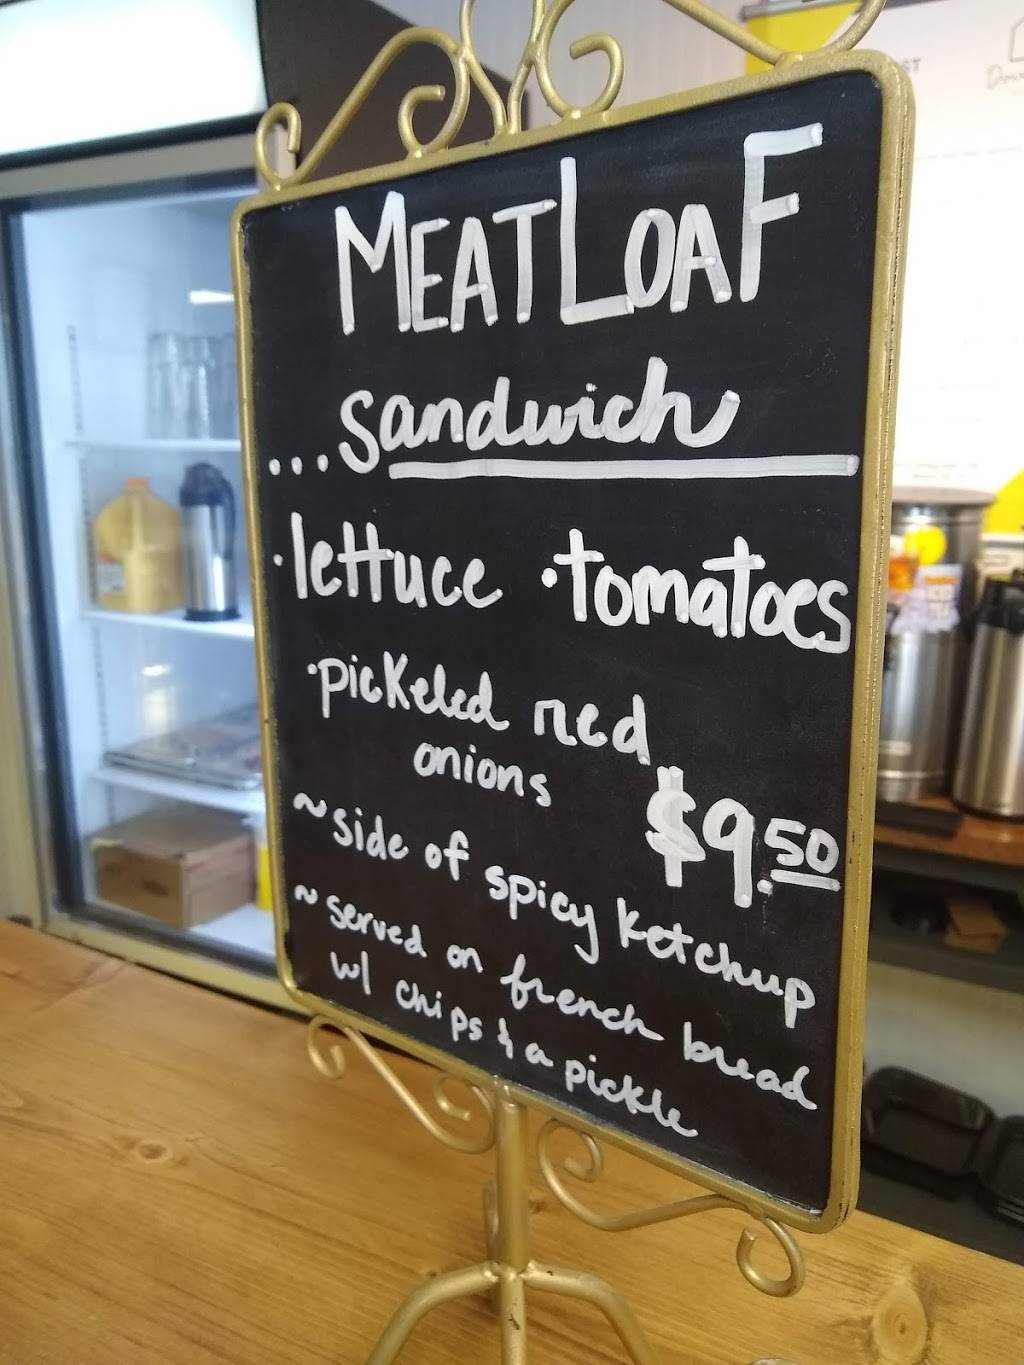 MEATLOAF
...sandwich
·lettuce ·tomatoes
·pickeled red
onions
$9.50
~side of spicy ketchup
~served on french bread
w/ chips & a pickle